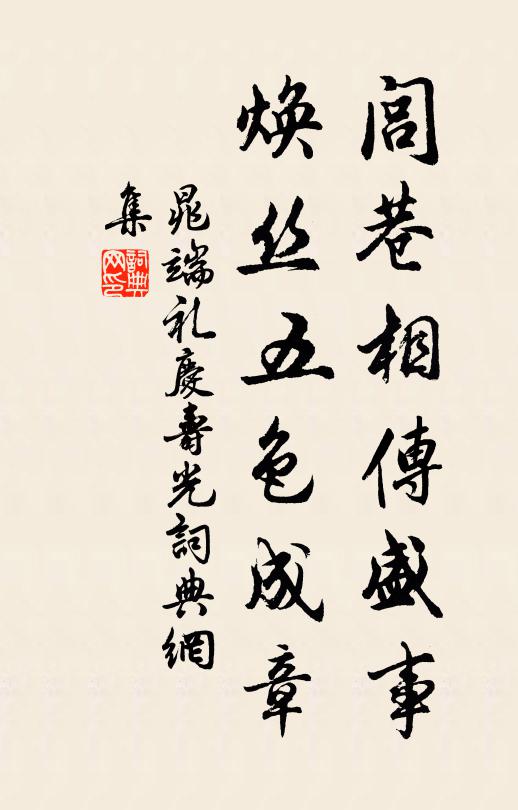 闾巷相傳盛事
焕丝五色成章
晁端礼慶壽光詞典網
集
詞典
网印